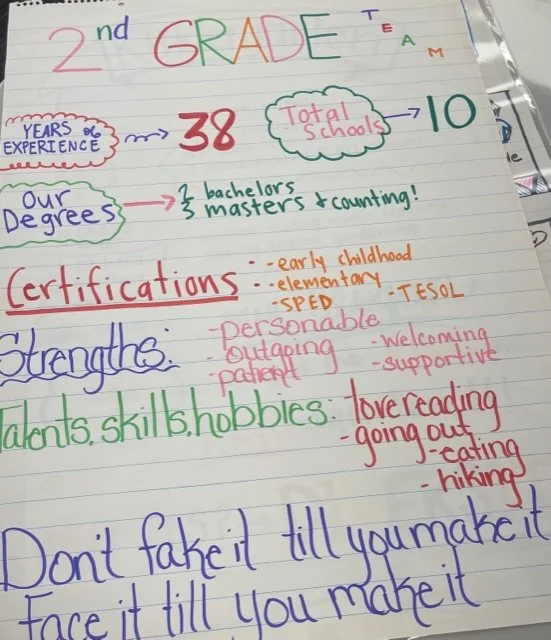 2nd GRADE TEAM
YEARS of
EXPERIENCE → 38
Total
Schools → 10
Our
Degrees → 2 bachelors
3 masters + counting!
Certifications: - early childhood
- elementary
- SPED - TESOL
Strengths: - personable
- outgoing - welcoming
- patient - supportive
Talents, skills, hobbies: love reading
- going out
- eating
- hiking
Don't fake it till you make it
Face it till you make it